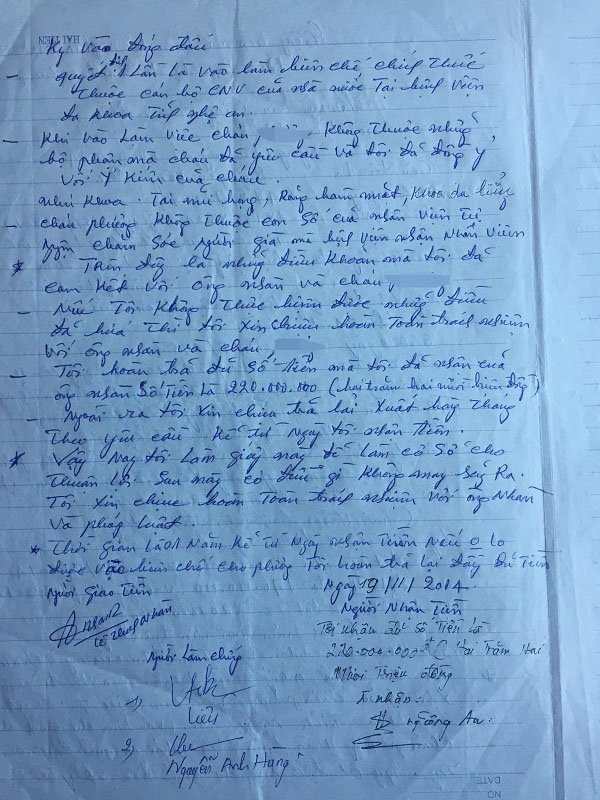 HAI TIEN
Ký vào đóng dấu
- quyết định Lần là vào làm biên chế chính thức
thuộc cán bộ CNV của nhà nước Tại bệnh viện
đa khoa Tỉnh nghệ an.
- Khi vào Làm việc cháu Không Thuộc những
bộ phận mà cháu đã yêu cầu và tôi đã đồng ý
với ý kiến của cháu.
như khoa. Tai mũi họng, Răng hàm mặt, khoa da liễu
- cháu phường không thuộc con số của nhân viên
chăm sóc người già mà bệnh viện nhận nhân viên
* Trên đây là những điều khoản mà tôi đã
cam kết với ông nhân và cháu
- Nếu Tôi Không Thực hiện được những điều
đã hứa Thì tôi xin chịu hoàn Toàn trách nghiệm
với ông nhân và cháu
- Tôi hoàn trả đủ số Tiền mà tôi đã nhận của
ông nhân số tiền là 220.000.000 (hai trăm hai mươi triệu đồng)
- Ngoài ra tôi xin chịu trả lãi xuất hàng tháng
Theo yêu cầu kể từ ngày tôi nhận Tiền.
* Vậy nay tôi làm giấy này để làm cơ sở cho
Thuận lợi sau này có điều gì không may sảy Ra.
Tôi xin chịu hoàn Toàn trách nghiệm với ông Nhân
và pháp luật..
* Thời gian là 01 Năm kể từ ngày nhận tiền nếu 0 lo
được vào biên chế cho phường Tôi hoàn trả lại đầy đủ tiền
Người giao tiền
Ngày 19/11/2014
Người Nhận tiền
Tôi nhận đủ số tiền là
220.000.000đ (Hai Trăm Hai
Mươi Triệu đồng
Người làm chứng
1)
2)
Nguyễn Anh Hàng
NO
DATE